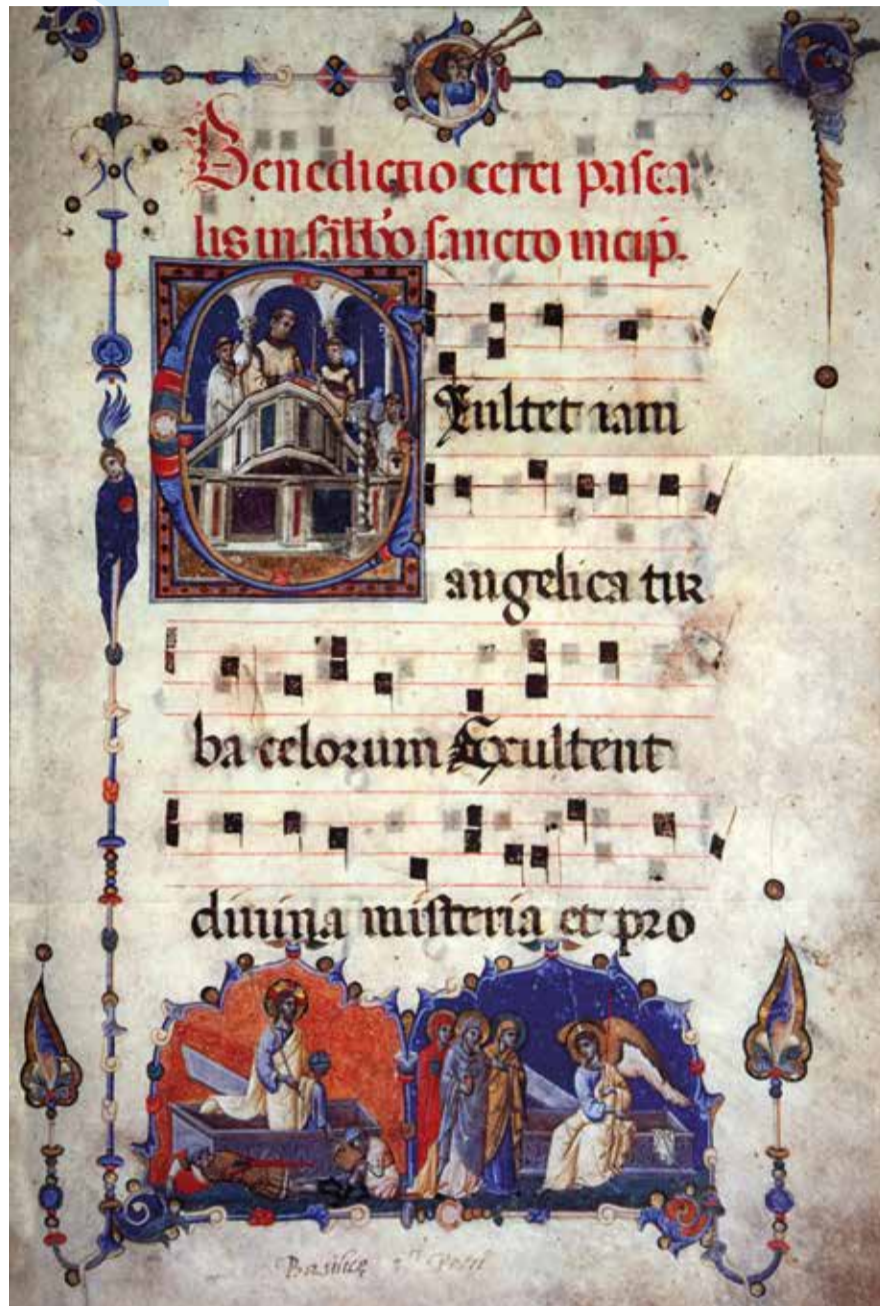 Benedictio cerei pasca
lis in sabbo sancto incip.
Exultet iam
angelica tur
ba celorum Exultent
diuina misteria et pro
Basilice